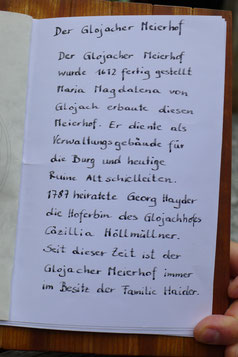 Der Glojacher Meierhof
Der Glojacher Meierhof
wurde 1612 fertig gestellt
Maria Magdalena von
Glojach erbaute diesen
Meierhof. Er diente als
Verwaltungsgebäude für
die Burg und heutige
Ruine Alt schielleiten.
1787 heiratete Georg Hayder
die Hoferbin des Glojachhofes
Cäzillia Höllmüllner.
Seit dieser Zeit ist der
Glojacher Meierhof immer
im Besitz der Familie Haider.